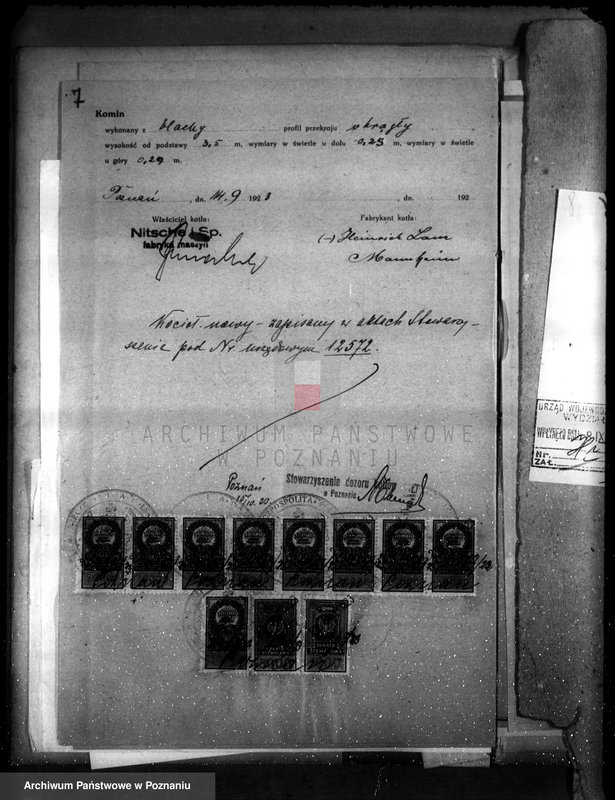 7
Komin
wykonany z blachy profil przekroju okrągły
wysokość od podstawy 3,5 m, wymiary w świetle u dołu 0,25 m, wymiary w świetle
u góry 0,29 m.
Poznań, dn. 14.9 1923 , dn. 192
Właściciel kotła: Fabrykant kotła:
Nitsche i Sp. (-) Heinrich Lanz
fabryka maszyn Mannheim
Kocioł nowy - zapisany w aktach Stowarzy-
szenia pod Nr urzędowym 12572.
ARCHIWUM PAŃSTWOWE
W POZNANIU
Poznań Stowarzyszenie dozoru kotłów
15/10. 23 w Poznaniu
8
URZĄD WOJEWÓ
WYDZIA
WPŁYNĘŁO
Nr.
ZAŁ.
Archiwum Państwowe w Poznaniu